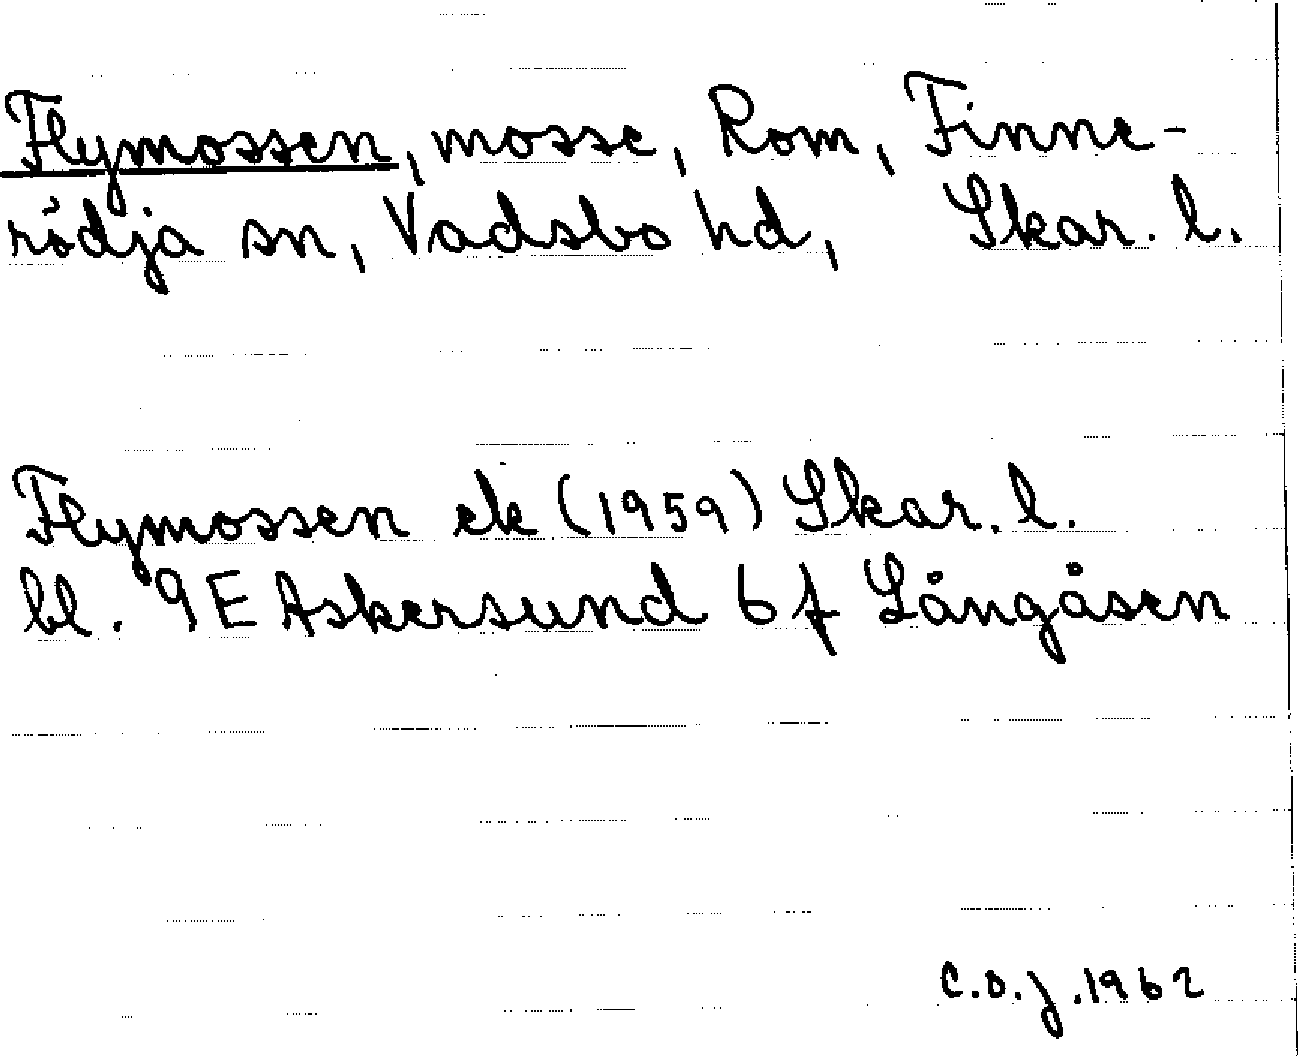 Flymossen, mosse, Rom, Finne-
rödja sn, Vadsbo hd, Skar. l.
Flymossen ek (1959) Skar. l.
bl. 9E Askersund 6f Långåsen
C.O.J. 1962